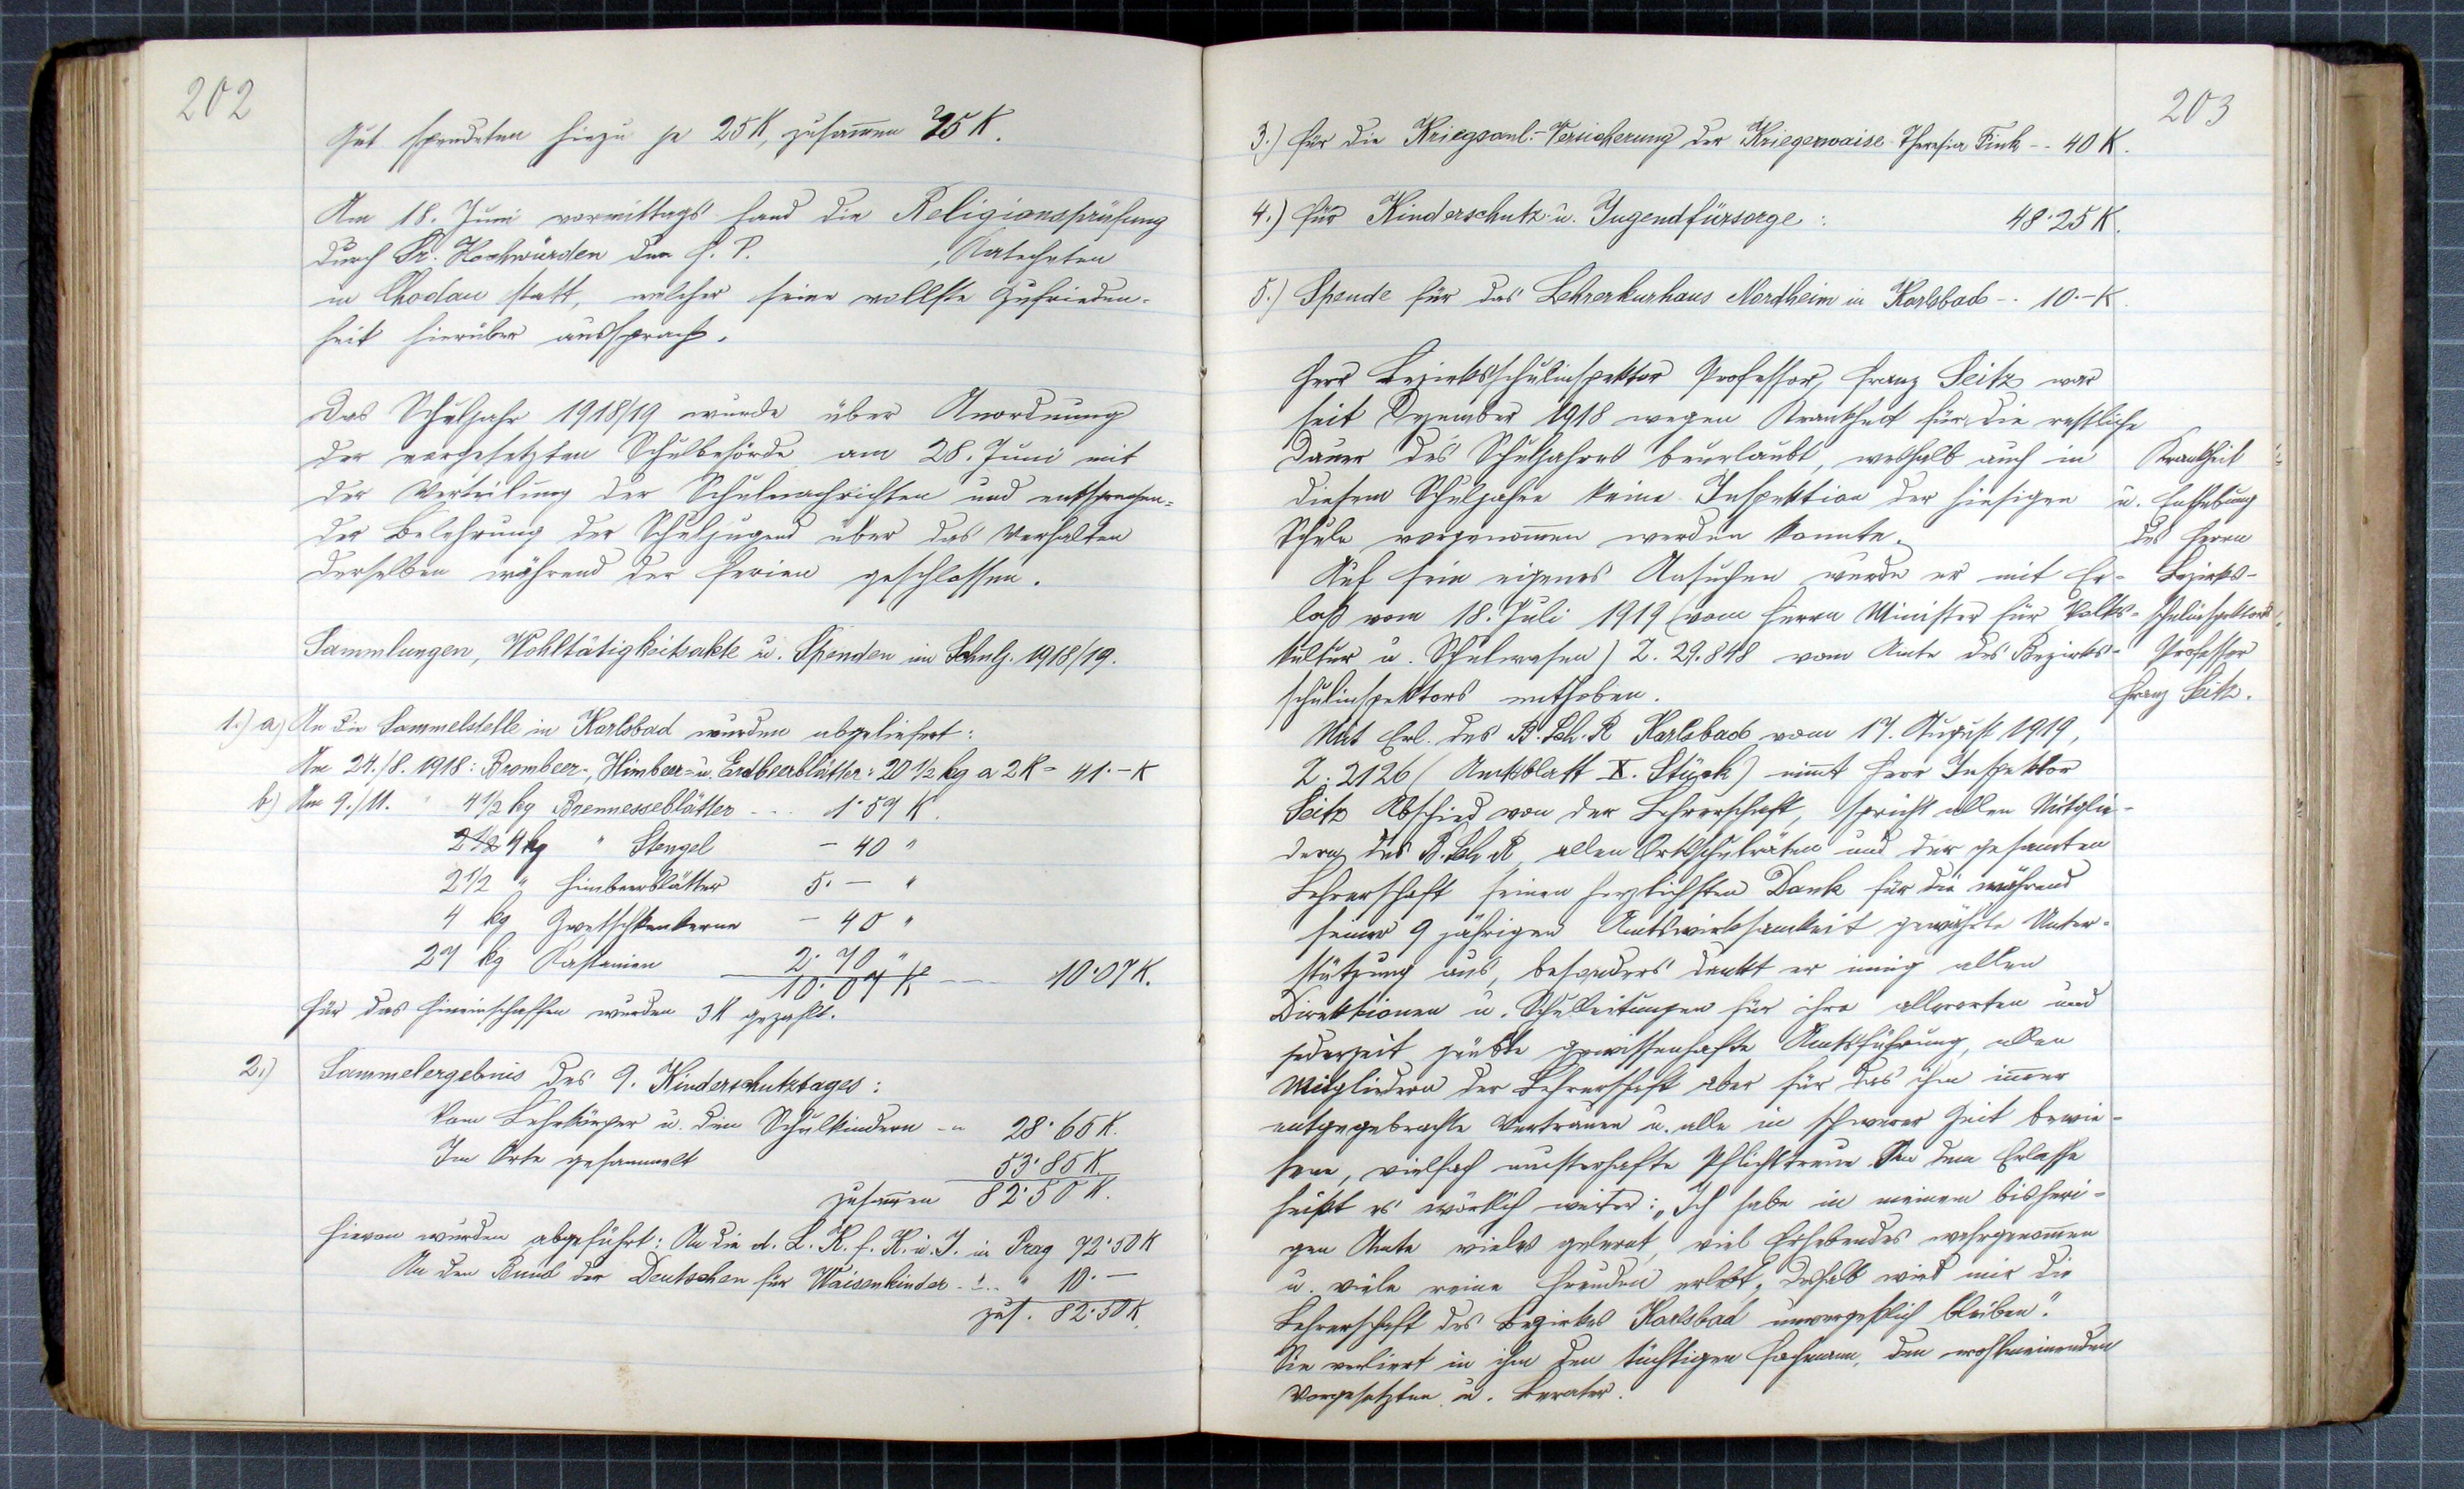 202
Gut spendeten hiezu je 25 K, zusam̄en 75 K.
Am 18. Juni vormittags fand die Religionsprüfung
durch Sr. Hochwürden den H. P. , Katecheten
in Chodau statt, welcher seine vollste Zufrieden-
heit hierüber aussprach.
Das Schuljahr 1918/19 wurde über Anordnung
der vorgesetzten Schulbehörde am 28. Juni mit
der Verteilung der Schulnachrichten und entsprechen-
der Belehrung der Schuljugend über das Verhalten
derselben während der Ferien geschlossen.
Sammlungen, Wohltätigkeitsakte u. Spenden im Schulj. 1918/19.
1.) a) An die Sammelstelle in Karlsbad wurden abgeliefert:
Am 24./8. 1918: Brombeer-, Himbeer- u. Erdbeerblätter: 20 1/2 kg a 2 K = 41.- K
b) Am 9./11. " 4 1/2 kg Brennesseblätter - - - 1·57 K.
4 kg " Stengel - 40 "
2 1/2 " Himbeerblätter 5.- "
4 kg Zwetschkenkerne - 40 "
27 kg Kastanien 2·70 "
10·07 K - - - 10·07 K.
Für das Hineinschaffen wurden 3 K gezahlt.
2.) Sammelergebnis des 9. Kinderschutztages:
Vom Lehrkörper u. den Schulkindern - " 28·65 K.
Im Orte gesammelt 53·85 K.
zusam̄en 82·50 K.
Hievon wurden abgeführt: An die d. L. K. f. K. u. J. in Prag 72·50 K
An den Bund der Deutschen für Waisenkinder - " 10.-
zus. 82·50 K.
203
3.) Für die Kriegsanl.-Versicherung der Kriegerwaise Theresia Fink - - 40 K.
4.) Für Kinderschutz u. Jugendfürsorge: 48·25 K.
5.) Spende für das Lehrerkurhaus Nordheim in Karlsbad - . 10.- K.
Herr Bezirksschulinspektor Professor, Franz Seitz war
seit Dezember 1918 wegen Krankheit für die restliche
Dauer des Schuljahres beurlaubt, weshalb auch in
diesem Schuljahre keine Inspektion der hiesigen
Schule vorgenom̄en werden konnte.
Auf sein eigenes Ansuchen wurde er mit Er-
laß vom 18. Juli 1919 (vom Herrn Minister für Volks-
kultur u. Schulwesen) Z. 29.848 vom Amte des Bezirks-
schulinspektors enthoben.
Krankheit
u. Enthebung
des Herrn
Bezirks-
schulinspektors
Professor
Franz Seitz.
Mit Erl. des B. Sch. R Karlsbad vom 17. August 1919,
Z: 2126 (Amtsblatt X. Stück) nim̄t Herr Inspektor
Seitz Abschied von der Lehrerschaft, spricht allen Mitglie-
dern des B. Sch. R, allen Ortsschulräten und der gesamten
Lehrerschaft seinen herzlichsten Dank für die während
seiner 9 jährigen Amtswirksamkeit gewährte Unter-
stützung aus, besonders dankt er innig allen
Direktionen u. Schulleitungen für ihre allerorten und
jederzeit geübte gewissenhafte Amtsführung, allen
Mitgliedern der Lehrerschaft aber für das ihm im̄er
entgegebrachte Vertrauen u. alle in schwerer Zeit bewie-
sene, vielfach musterhafte Pflichttreue. In dem Erlasse
heißt es wörtlich weiter: „Ich habe in meinem bisheri-
gen Amte vieles gelernt, viel Erhebendes wahrgenom̄en
u. viele reine Freuden erlebt, deshalb wird mir die
Lehrerschaft des Bezirkes Karlsbad unvergeßlich bleiben."
Sie verliert in ihm den tüchtigen Fachmann, den wohlmeinenden
Vorgesetzten u. Berater.